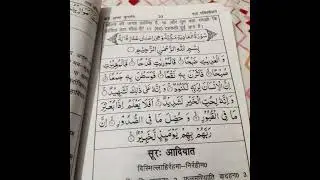 بِسْمِ اللهِ الرَّحْمٰنِ الرَّحِيْمِ
وَ الْعٰدِيٰتِ ضَبْحًا فَالْمُوْرِيٰتِ قَدْحًا فَالْمُغِيْرٰتِ
صُبْحًا فَاَثَرْنَ بِهٖ نَقْعًا فَوَسَطْنَ بِهٖ جَمْعًا
اِنَّ الْاِنْسَانَ لِرَبِّهٖ لَكَنُوْدٌ وَ اِنَّهٗ عَلٰى ذٰلِكَ لَشَهِيْدٌ
وَ اِنَّهٗ لِحُبِّ الْخَيْرِ لَشَدِيْدٌ اَفَلَا يَعْلَمُ اِذَا بُعْثِرَ
مَا فِى الْقُبُوْرِ وَ حُصِّلَ مَا فِى الصُّدُوْرِ اِنَّ
رَبَّهُمْ بِهِمْ يَوْمَئِذٍ لَّخَبِيْرٌ
सूरः आदियात
बिस्मिल्लाहिर्रहमा-निर्रहीम०